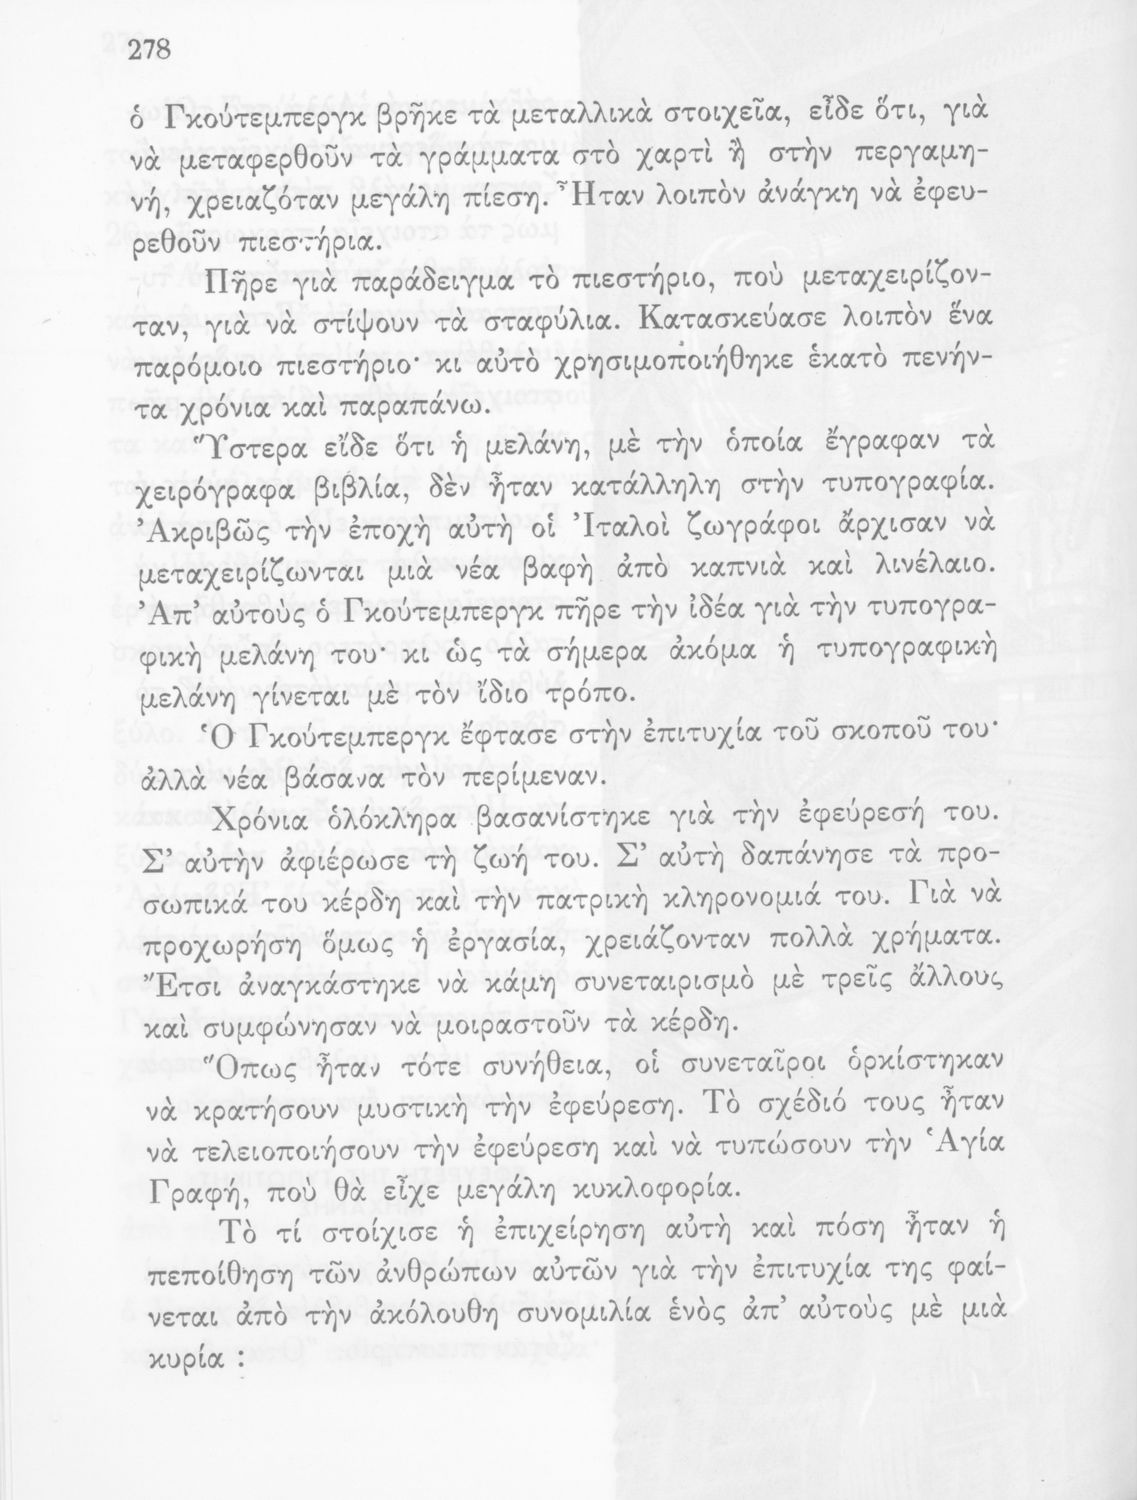 278
ὁ Γκούτεμπεργκ βρῆκε τὰ μεταλλικὰ στοιχεῖα, εἶδε ὅτι, γιὰ
νὰ μεταφερθοῦν τὰ γράμματα στὸ χαρτὶ ἢ στὴν περγαμη-
νή, χρειαζόταν μεγάλη πίεση. Ἦταν λοιπὸν ἀνάγκη νὰ ἐφευ-
ρεθοῦν πιεστήρια.
Πῆρε γιὰ παράδειγμα τὸ πιεστήριο, ποὺ μεταχειρίζον-
ταν, γιὰ νὰ στίψουν τὰ σταφύλια. Κατασκεύασε λοιπὸν ἕνα
παρόμοιο πιεστήριο· κι αὐτὸ χρησιμοποιήθηκε ἑκατὸ πενήν-
τα χρόνια καὶ παραπάνω.
Ὕστερα εἶδε ὅτι ἡ μελάνη, μὲ τὴν ὁποία ἔγραφαν τὰ
χειρόγραφα βιβλία, δὲν ἦταν κατάλληλη στὴν τυπογραφία.
Ἀκριβῶς τὴν ἐποχὴ αὐτὴ οἱ Ἰταλοὶ ζωγράφοι ἄρχισαν νὰ
μεταχειρίζωνται μιὰ νέα βαφὴ ἀπὸ καπνιὰ καὶ λινέλαιο.
Ἀπ’ αὐτοὺς ὁ Γκούτεμπεργκ πῆρε τὴν ἰδέα γιὰ τὴν τυπογρα-
φικὴ μελάνη του· κι ὡς τὰ σήμερα ἀκόμα ἡ τυπογραφικὴ
μελάνη γίνεται μὲ τὸν ἴδιο τρόπο.
Ὁ Γκούτεμπεργκ ἔφτασε στὴν ἐπιτυχία τοῦ σκοποῦ του·
ἀλλὰ νέα βάσανα τὸν περίμεναν.
Χρόνια ὁλόκληρα βασανίστηκε γιὰ τὴν ἐφεύρεσή του.
Σ’ αὐτὴν ἀφιέρωσε τὴ ζωή του. Σ’ αὐτὴ δαπάνησε τὰ προ-
σωπικά του κέρδη καὶ τὴν πατρικὴ κληρονομιά του. Γιὰ νὰ
προχωρήση ὅμως ἡ ἐργασία, χρειάζονταν πολλὰ χρήματα.
Ἔτσι ἀναγκάστηκε νὰ κάμη συνεταιρισμὸ μὲ τρεῖς ἄλλους
καὶ συμφώνησαν νὰ μοιραστοῦν τὰ κέρδη.
Ὅπως ἦταν τότε συνήθεια, οἱ συνεταῖροι ὁρκίστηκαν
νὰ κρατήσουν μυστικὴ τὴν ἐφεύρεση. Τὸ σχέδιό τους ἦταν
νὰ τελειοποιήσουν τὴν ἐφεύρεση καὶ νὰ τυπώσουν τὴν Ἁγία
Γραφή, ποὺ θὰ εἶχε μεγάλη κυκλοφορία.
Τὸ τί στοίχισε ἡ ἐπιχείρηση αὐτὴ καὶ πόση ἦταν ἡ
πεποίθηση τῶν ἀνθρώπων αὐτῶν γιὰ τὴν ἐπιτυχία της φαί-
νεται ἀπὸ τὴν ἀκόλουθη συνομιλία ἑνὸς ἀπ’ αὐτοὺς μὲ μιὰ
κυρία :